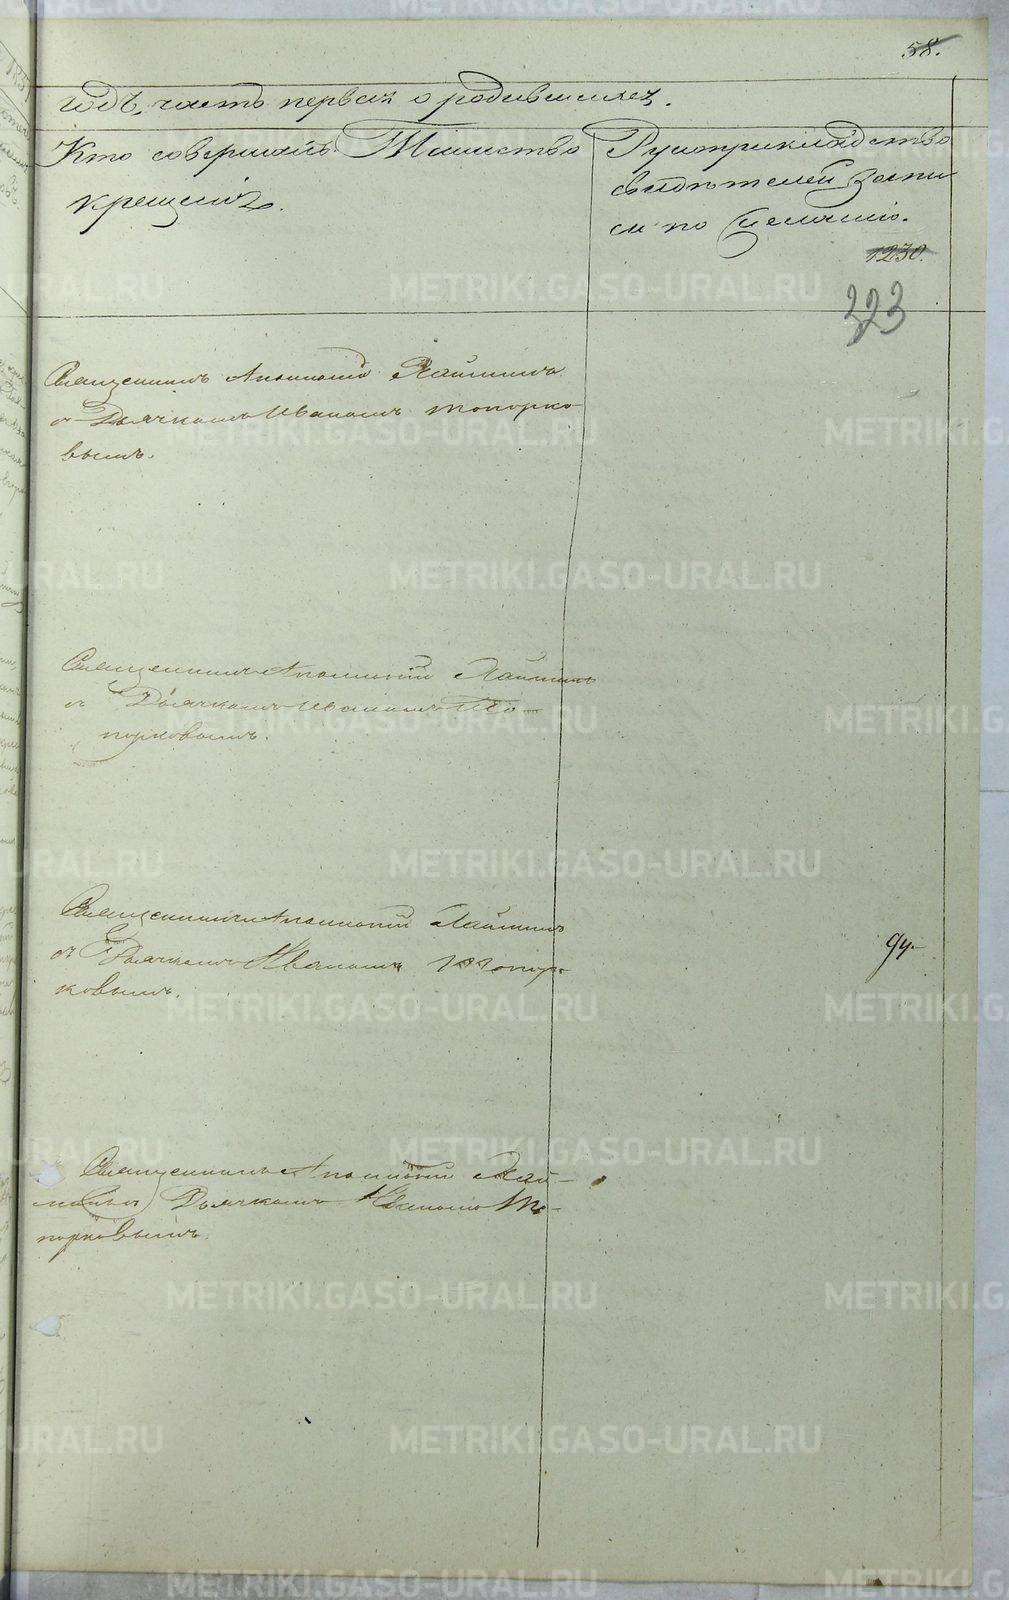 58.
годъ, часть первая о родившихся.
Кто совершалъ Таинство
крещенія.
Рукоприкладство
свидѣтелей записи
по желанію.
1230.
323
Священникъ Аполлоній
съ Дьячкомъ Иваномъ Топорко-
вымъ.
Священникъ Аполлоній
съ Дьячкомъ Иваномъ То-
порковымъ.
Священникъ Аполлоній
съ Дьячкомъ Иваномъ Топор-
ковымъ.
94.
Священникъ Аполлоній
Дьячкомъ Иваномъ То-
порковымъ.
METRIKI.GASO-URAL.RU